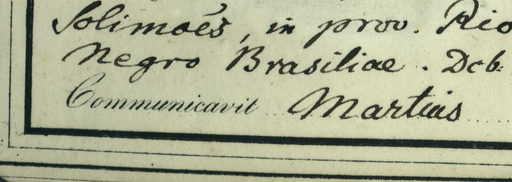 Solimoës, in prov. Rio
Negro Brasiliae. Dcb.
Communicavit Martius